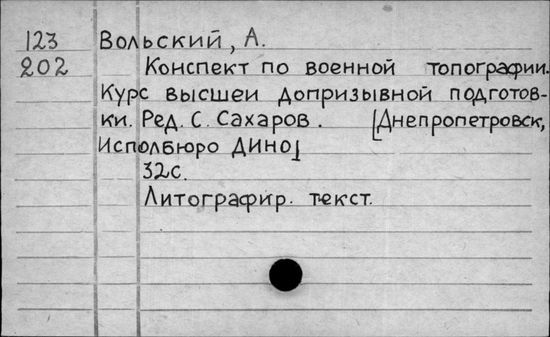 123 Вольский, А.
202 Конспект по военной топографии.
Курс высшей допризывной подготов-
ки. Ред. С. Сахаров. [Днепропетровск,
Исполбюро ДИНО]
32с.
Литографир. текст.